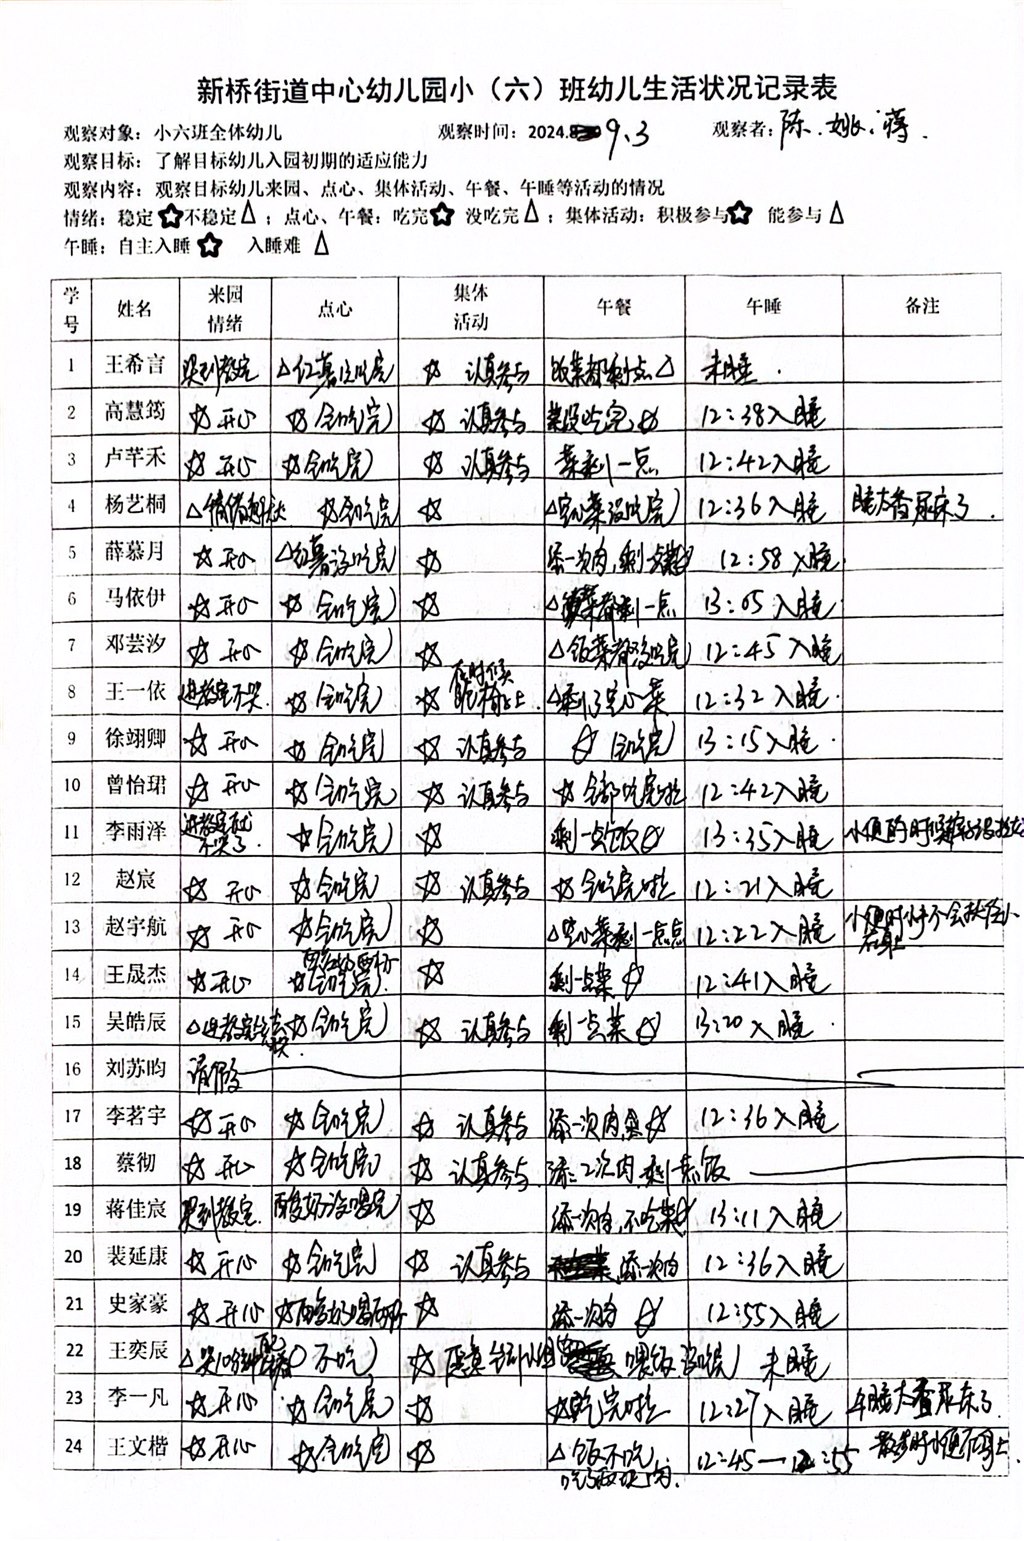 新桥街道中心幼儿园小（六）班幼儿生活状况记录表
观察对象：小六班全体幼儿 观察时间：2024.9.3 观察者：陈.姚.蒋.
观察目标：了解目标幼儿入园初期的适应能力
观察内容：观察目标幼儿来园、点心、集体活动、午餐、午睡等活动的情况
情绪：稳定☆不稳定△；点心、午餐：吃完☆ 没吃完△；集体活动：积极参与☆ 能参与△
午睡：自主入睡☆ 入睡难△
学号 姓名 来园情绪 点心 集体活动 午餐 午睡 备注
1 王希言 哭到教室 △红薯没吃完 ☆ 认真参与 饭菜都剩点△ 未睡.
2 高慧筠 ☆开心 ☆全吃完 ☆ 认真参与 菜没吃完☆ 12:38入睡
3 卢芊禾 ☆开心 ☆全吃完 ☆ 认真参与 菜剩一点 12:42入睡
4 杨艺桐 △情绪 ☆全吃完 ☆ △空心菜没吃完 12:36入睡 睡大香尿床了.
5 薛慕月 ☆开心 △红薯没吃完 ☆ 添一次肉,剩一点 12:58入睡.
6 马依伊 ☆开心 ☆全吃完 ☆ △菜都剩一点 13:05入睡.
7 邓芸汐 ☆开心 ☆全吃完 ☆ △饭菜都没吃完 12:45入睡
8 王一依 进教室不哭. ☆全吃完 ☆ 有时候趴椅上. △剩了空心菜 12:32入睡
9 徐翊卿 ☆开心 ☆全吃完 ☆ 认真参与 ☆全吃完 13:15入睡.
10 曾怡珺 ☆开心 ☆全吃完 ☆ 认真参与 ☆全部吃完啦 12:42入睡
11 李雨泽 进教室就不哭了 ☆全吃完 ☆ 剩一点饭☆ 13:35入睡 小便的时候
12 赵宸 ☆开心 ☆全吃完 ☆ 认真参与 ☆全吃完啦 12:21入睡
13 赵宇航 ☆开心 ☆全吃完 ☆ △空心菜剩一点点 12:22入睡 小便时小手不会扶住小
14 王晟杰 ☆开心 ☆全吃完. ☆ 剩一点菜☆ 12:41入睡
15 吴皓辰 △进教室 ☆全吃完 ☆ 认真参与 剩一点菜☆ 13:20入睡.
16 刘苏昀 请假
17 李茗宇 ☆开心 ☆全吃完 ☆ 认真参与 添一次肉,鱼☆ 12:36入睡
18 蔡彻 ☆开心 ☆全吃完 ☆ 认真参与. 添2次肉,剩一点饭
19 蒋佳宸 哭到教室. 酸奶没喝完 ☆ 添一次肉,不吃菜 13:11入睡
20 裴延康 ☆开心 ☆全吃完 ☆ 认真参与 添一次肉 12:36入睡
21 史家豪 ☆开心 ☆ ☆ 添一次肉 ☆ 12:55入睡
22 王奕辰 △哭10分钟 不吃 ☆ 喂饭没吃完 未睡
23 李一凡 ☆开心 ☆全吃完 ☆ ☆吃完啦 12:27入睡 午睡大香尿床了.
24 王文楷 ☆开心 ☆全吃完 ☆ △饭不吃,吃了两块肉. 12:45—12:55